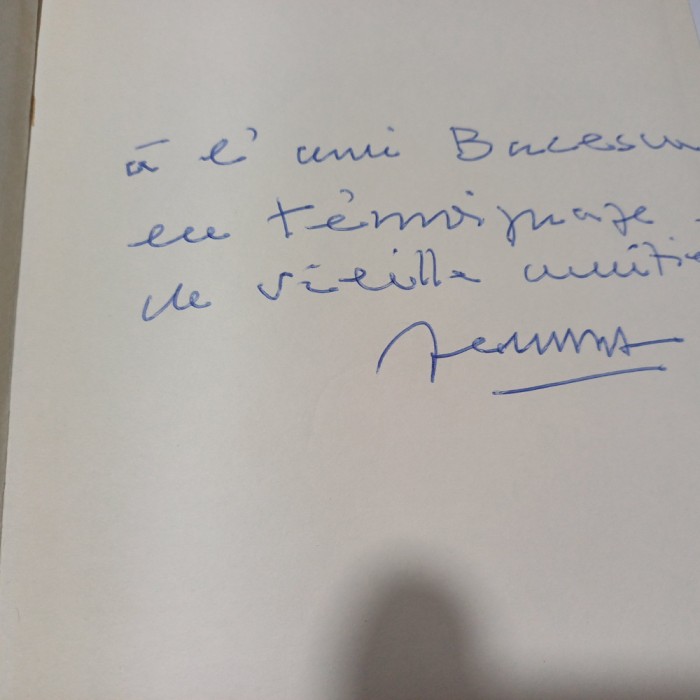 à l'ami Bacescu
en témoignage
de vieille amitié